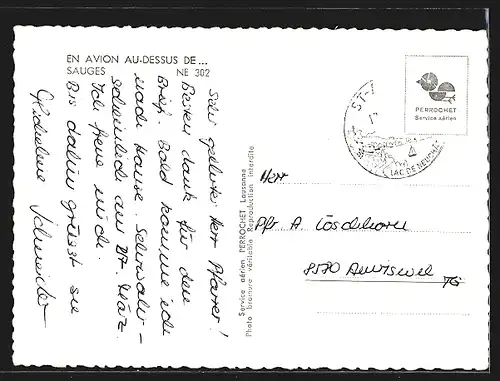 EN AVION AU-DESSUS DE...
SAUGES NE 302
Sehr geehrter Herr Pfarrer!
Besten Dank für den
Brief. Bald komme ich
nach Hause.
am 27. März.
Ich freue mich.
Bis dahin grüsst sie
Schneider
Service aérien PERROCHET Lausanne
Photo bromure véritable Reproduction interdite
PERROCHET
Service aérien
ST-
LAC DE NEUCHÂ
Herr
Pfr. A.
8570
TG